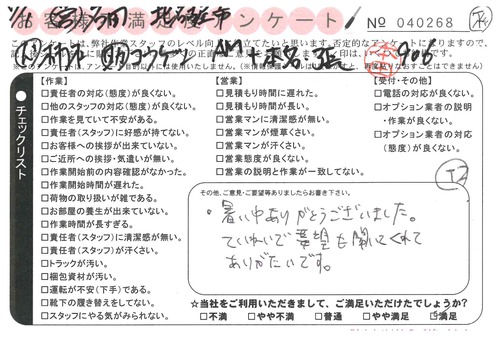 お客様満足度アンケート
No 040268
このアンケートは、弊社作業スタッフのレベル向上
に役立てたいと思います。否定的なアンケートになりますので、
チェックリスト
【作業】
□責任者の対応(態度)が良くない。
□他のスタッフの対応(態度)が良くない。
□作業を見ていて不安がある。
□責任者(スタッフ)に好感が持てない。
□お客様への挨拶が出来ていない。
□ご近所への挨拶・気遣いが無い。
□作業開始前の内容確認がなかった。
□作業開始時間が遅れた。
□荷物の取り扱いが雑である。
□お部屋の養生が出来ていない。
□作業時間が長すぎる。
□責任者(スタッフ)に清潔感が無い。
□責任者(スタッフ)が汗くさい。
□トラックが汚い。
□梱包資材が汚い。
□運転が不安(下手)である。
□靴下の履き替えをしてない。
□スタッフにやる気がみられない。
【営業】
□見積もり時間に遅れた。
□見積もり時間が長い。
□営業マンに清潔感が無い。
□営業マンが煙草くさい。
□営業マンが汗くさい。
□営業態度が良くない。
□営業の説明と作業が一致してない。
【受付・その他】
□電話の対応が良くない。
□オプション業者の説明
・作業が良くない。
□オプション業者の対応
(態度)が良くない。
その他、ご意見・ご要望等ありましたらお書き下さい。
・暑い中ありがとうございました。
ていねいで要望も聞いてくれて
ありがたいです。
☆当社をご利用いただきまして、ご満足いただけたでしょうか?
□不満 □やや不満 □普通 □やや満足 □満足